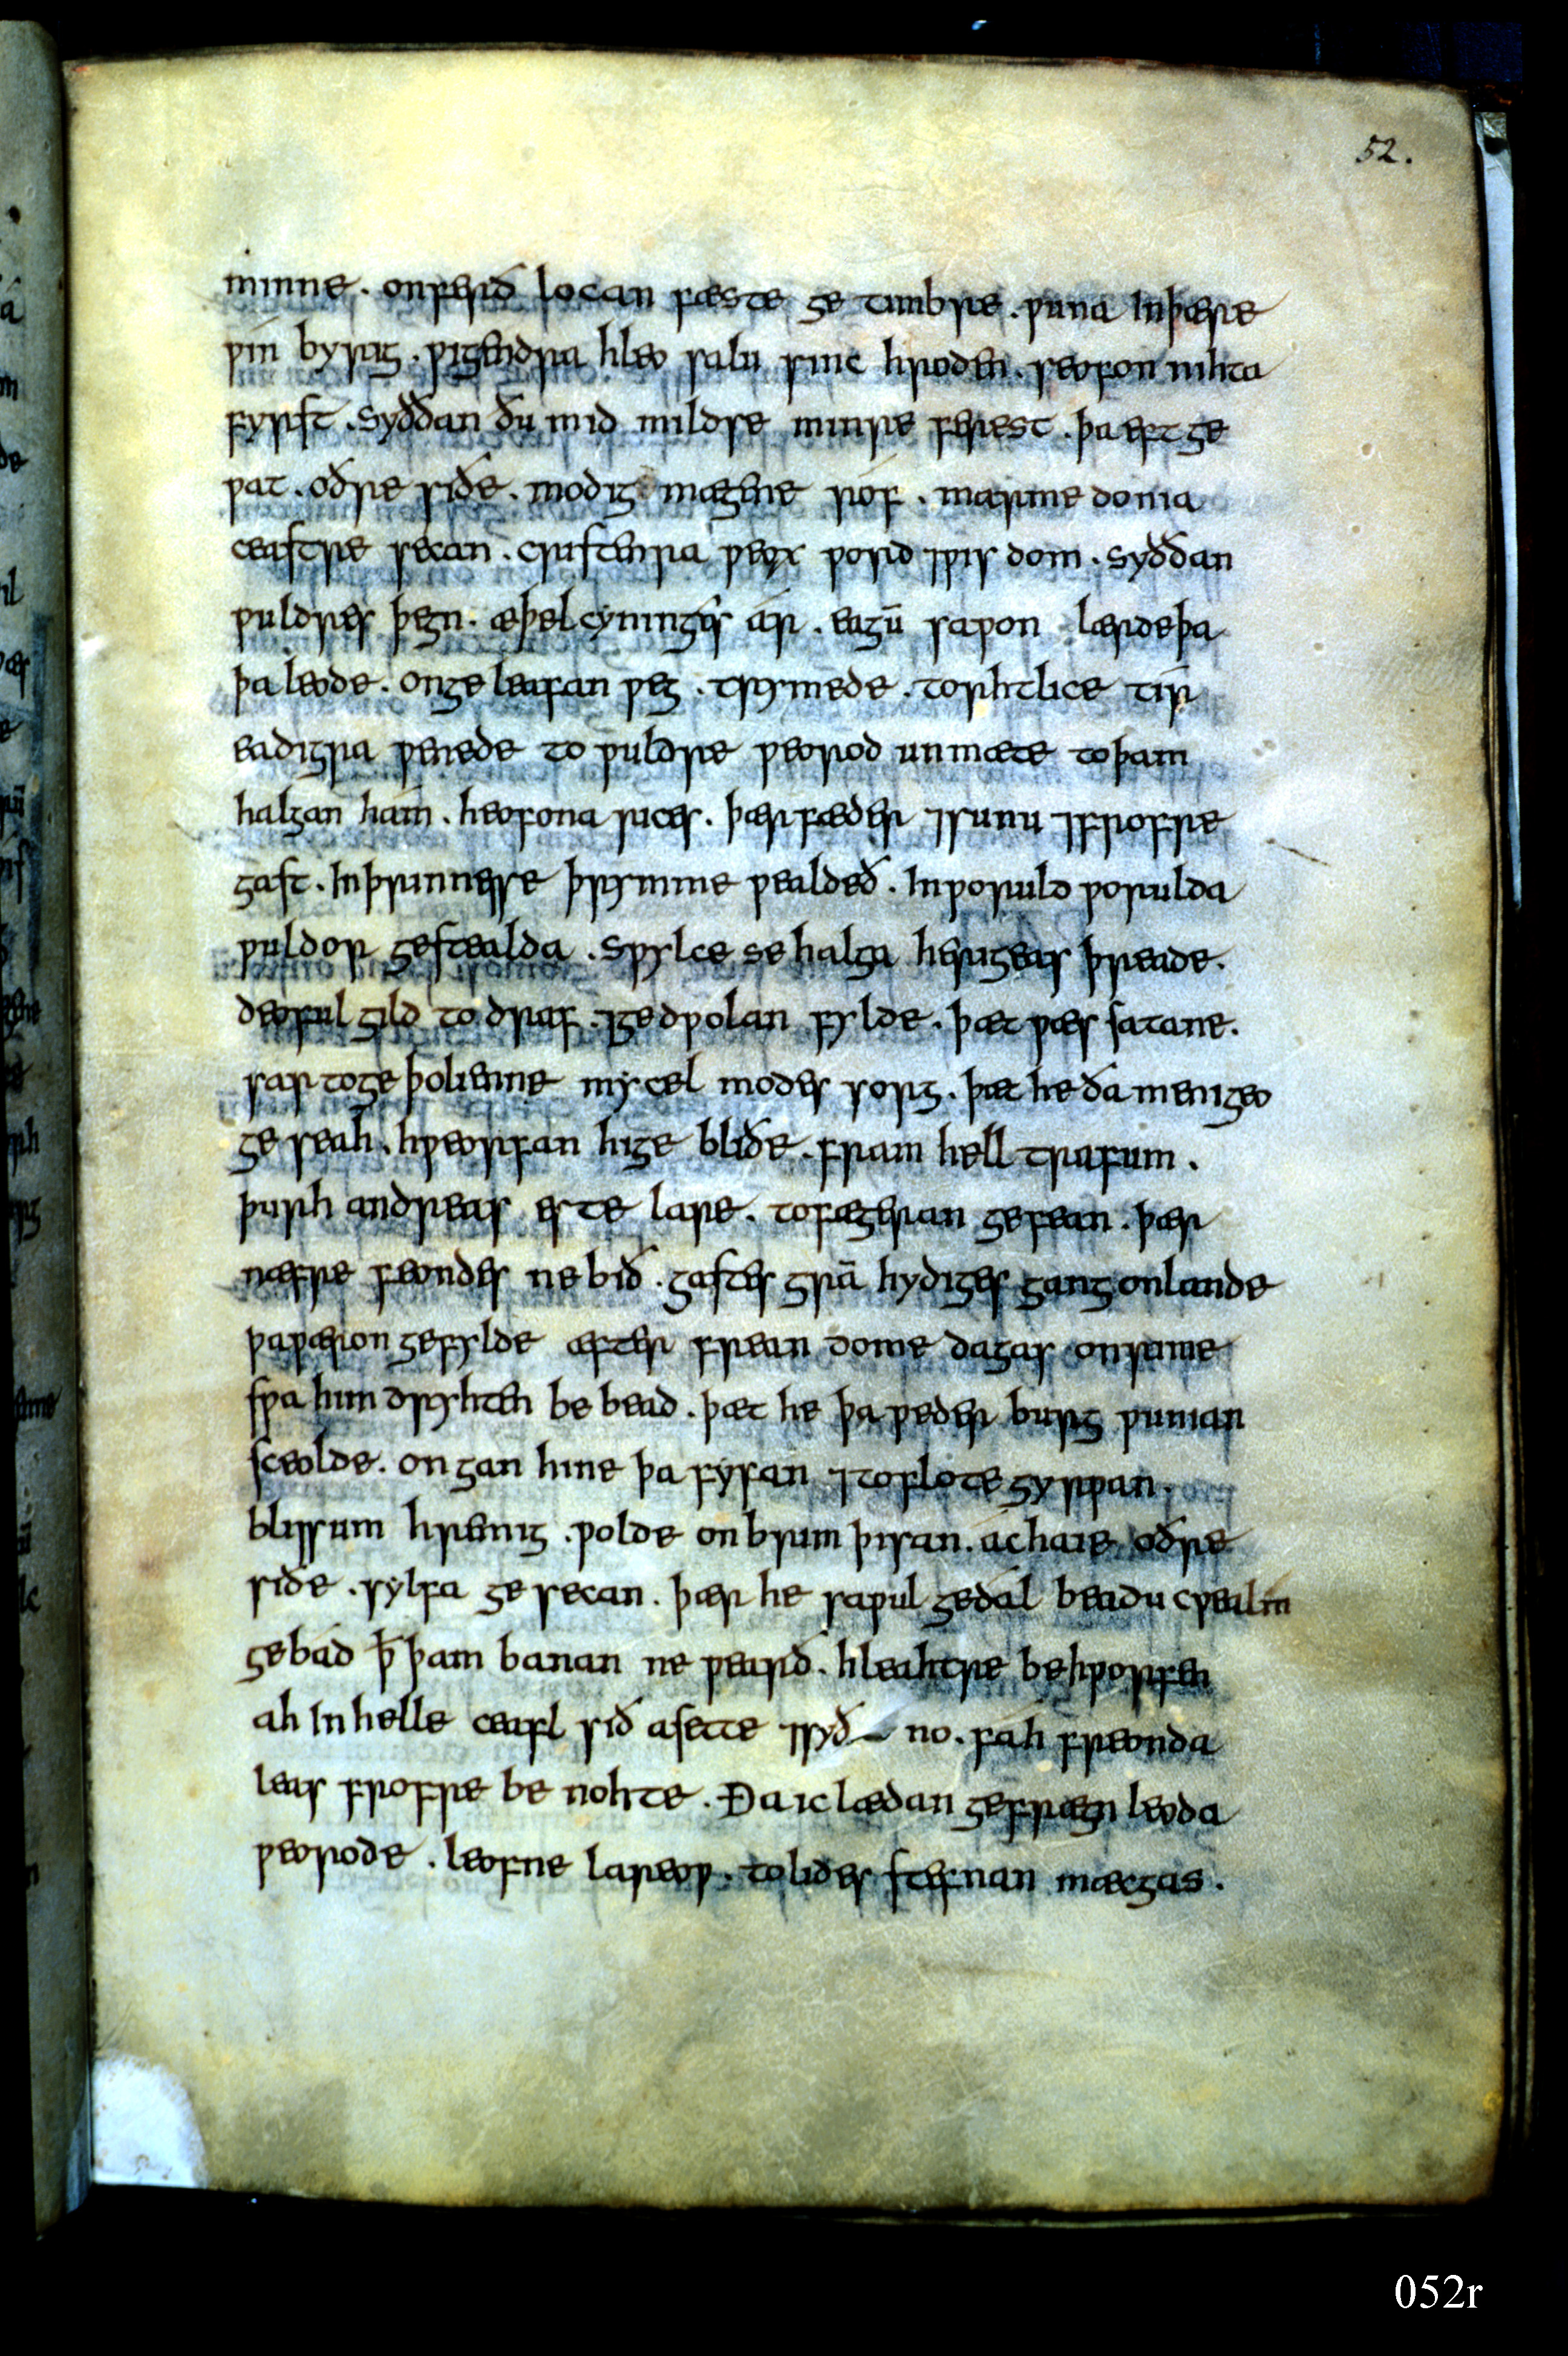 52.
minne . onferið locan fæste ge timbre . ƿuna inþære
ƿin byrig . ƿigendra hleo salu sinc hroden . seofon nihta
fyrst . syððan ðu mid mildse minre ferest . þa eft ge
ƿat . oðre siðe . modig mægene rof . marmedonia
ceastre secan . cristenra ƿeox ƿord ⁊ ƿis dom . syððan
ƿuldres þegn . æþelcyninges ár . eagū saƿon lærde þa
þa leode . on geleafan ƿeg . trymede . torhtlice tír
eadigra ƿenede to ƿuldre ƿeorod unmæte to þam
halgan hám . heofona rices . þær fæder ⁊ sunu ⁊ frofre
gast . in þrinnesse þrymme ƿealdeð . in ƿoruld ƿorulda
ƿuldor gestealda . sƿylce se halga herigeas þreade .
deoful gild to draf . ⁊ gedƿolan fylde . þæt ƿæs satane .
sar to geþolienne mycel modes sorg . þæt he ða menigeo
ge seah . hƿeorfan hige bliðe . fram hell trafum .
þurh andreas este lare . to fægeran gefean . þær
næfre feondes ne bið . gastes grā hydiges gang on lande
þa ƿæron gefylde æfter frean dome dagas on rime
sƿa him dryhten be bead . þæt he þa ƿeder burg ƿunian
sceolde . on gan hine þa fysan ⁊ to flote gyrƿan .
blissum hremig . ƿolde on brim þisan . áchaie oðre
siðe . sylfa ge secan . þær he saƿul gedál beadu cƿealm
gebád þ̄ þam banan ne ƿearð . hleahtre behƿorfen
ah in helle ceafl sið asette ⁊ syð no . fáh freonda
leas frofre be nohte . Ða ic lædan gefrægn leoda
ƿeorode . leofne lareoƿ . to lides stefnan mæcgas .
052r